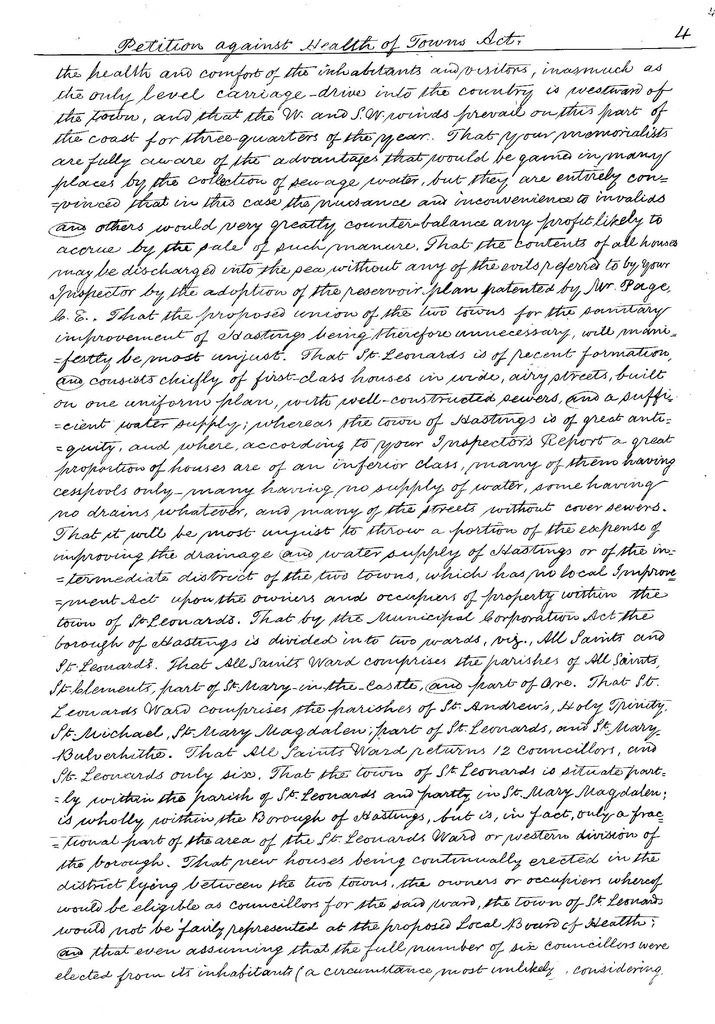 4
Petition against Health of Towns Act. 4
the health and comfort of the inhabitants and visitors, inasmuch as
the only level carriage-drive into the country is westward of
the town, and that the W. and S.W. winds prevail on this part of
the coast for three-quarters of the year. That your memorialists
are fully aware of the advantages that would be gained in many
places by the collection of sewage water, but they are entirely con=
=vinced that in this case the nuisance and inconvenience to invalids
and others would very greatly counter-balance any profit likely to
accrue by the sale of such manure. That the contents of all houses
may be discharged into the sea without any of the evils referred to by your
Inspector by the adoption of the reservoir plan patented by Mr. Page,
C.E.. That the proposed union of the two towns for the sanitary
improvement of Hastings being therefore unnecessary, will mani=
=festly be most unjust. That St. Leonards is of recent formation,
and consists chiefly of first-class houses in wide, airy streets, built
on one uniform plan, with well-constructed sewers, and a suffi=
=cient water supply; whereas the town of Hastings is of great anti=
=quity, and where, according to your Inspector's Report a great
proportion of houses are of an inferior class, many of them having
cesspools only - many having no supply of water, some having
no drains whatever, and many of the streets without cover sewers.
That it will be most unjust to throw a portion of the expense of
improving the drainage and water supply of Hastings or of the in=
=termediate district of the two towns, which has no local Improve
=ment Act upon the owners and occupiers of property within the
town of St. Leonards. That by the Municipal Corporation Act the
borough of Hastings is divided into two wards, viz., All Saints and
St. Leonards. That All Saints Ward comprises the parishes of All Saints,
St. Clements, part of St. Mary-in-the-Castle, and part of Ore. That St.
Leonards Ward comprises the parishes of St. Andrew's, Holy Trinity,
St. Michael, St. Mary Magdalen; part of St. Leonards, and St. Mary
Bulverhithe. That All Saints Ward returns 12 councillors, and
St. Leonards only six. That the town of St. Leonards is situate part=
=ly within the parish of St. Leonards and partly in St. Mary Magdalen;
is wholly within the Borough of Hastings, but is, in fact, only a frac=
=tional part of the area of the St. Leonards Ward or western division of
the borough. That new houses being continually erected in the
district lying between the two towns, the owners or occupiers whereof
would be eligible as councillors for the said ward, the town of St. Leonards
would not be fairly represented at the proposed Local Board of Health;
and that even assuming that the full number of six councillors were
elected from its inhabitants (a circumstance most unlikely, considering